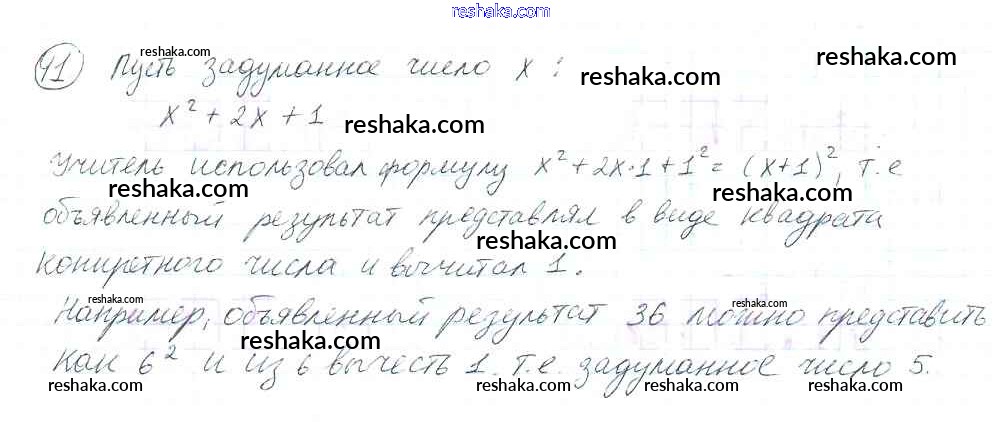 reshaka.com
41) Пусть задуманное число x :
reshaka.com
reshaka.com
x² + 2x + 1
reshaka.com
Учитель использовал формулу x² + 2x·1 + 1² = (x+1)², т.е
reshaka.com
reshaka.com
объявленный результат представлял в виде квадрата
reshaka.com
конкретного числа и вычитал 1.
reshaka.com
reshaka.com
Например, объявленный результат 36 можно представить
reshaka.com
как 6² и из 6 вычесть 1. т.е. задуманное число 5.
reshaka.com
reshaka.com
reshaka.com